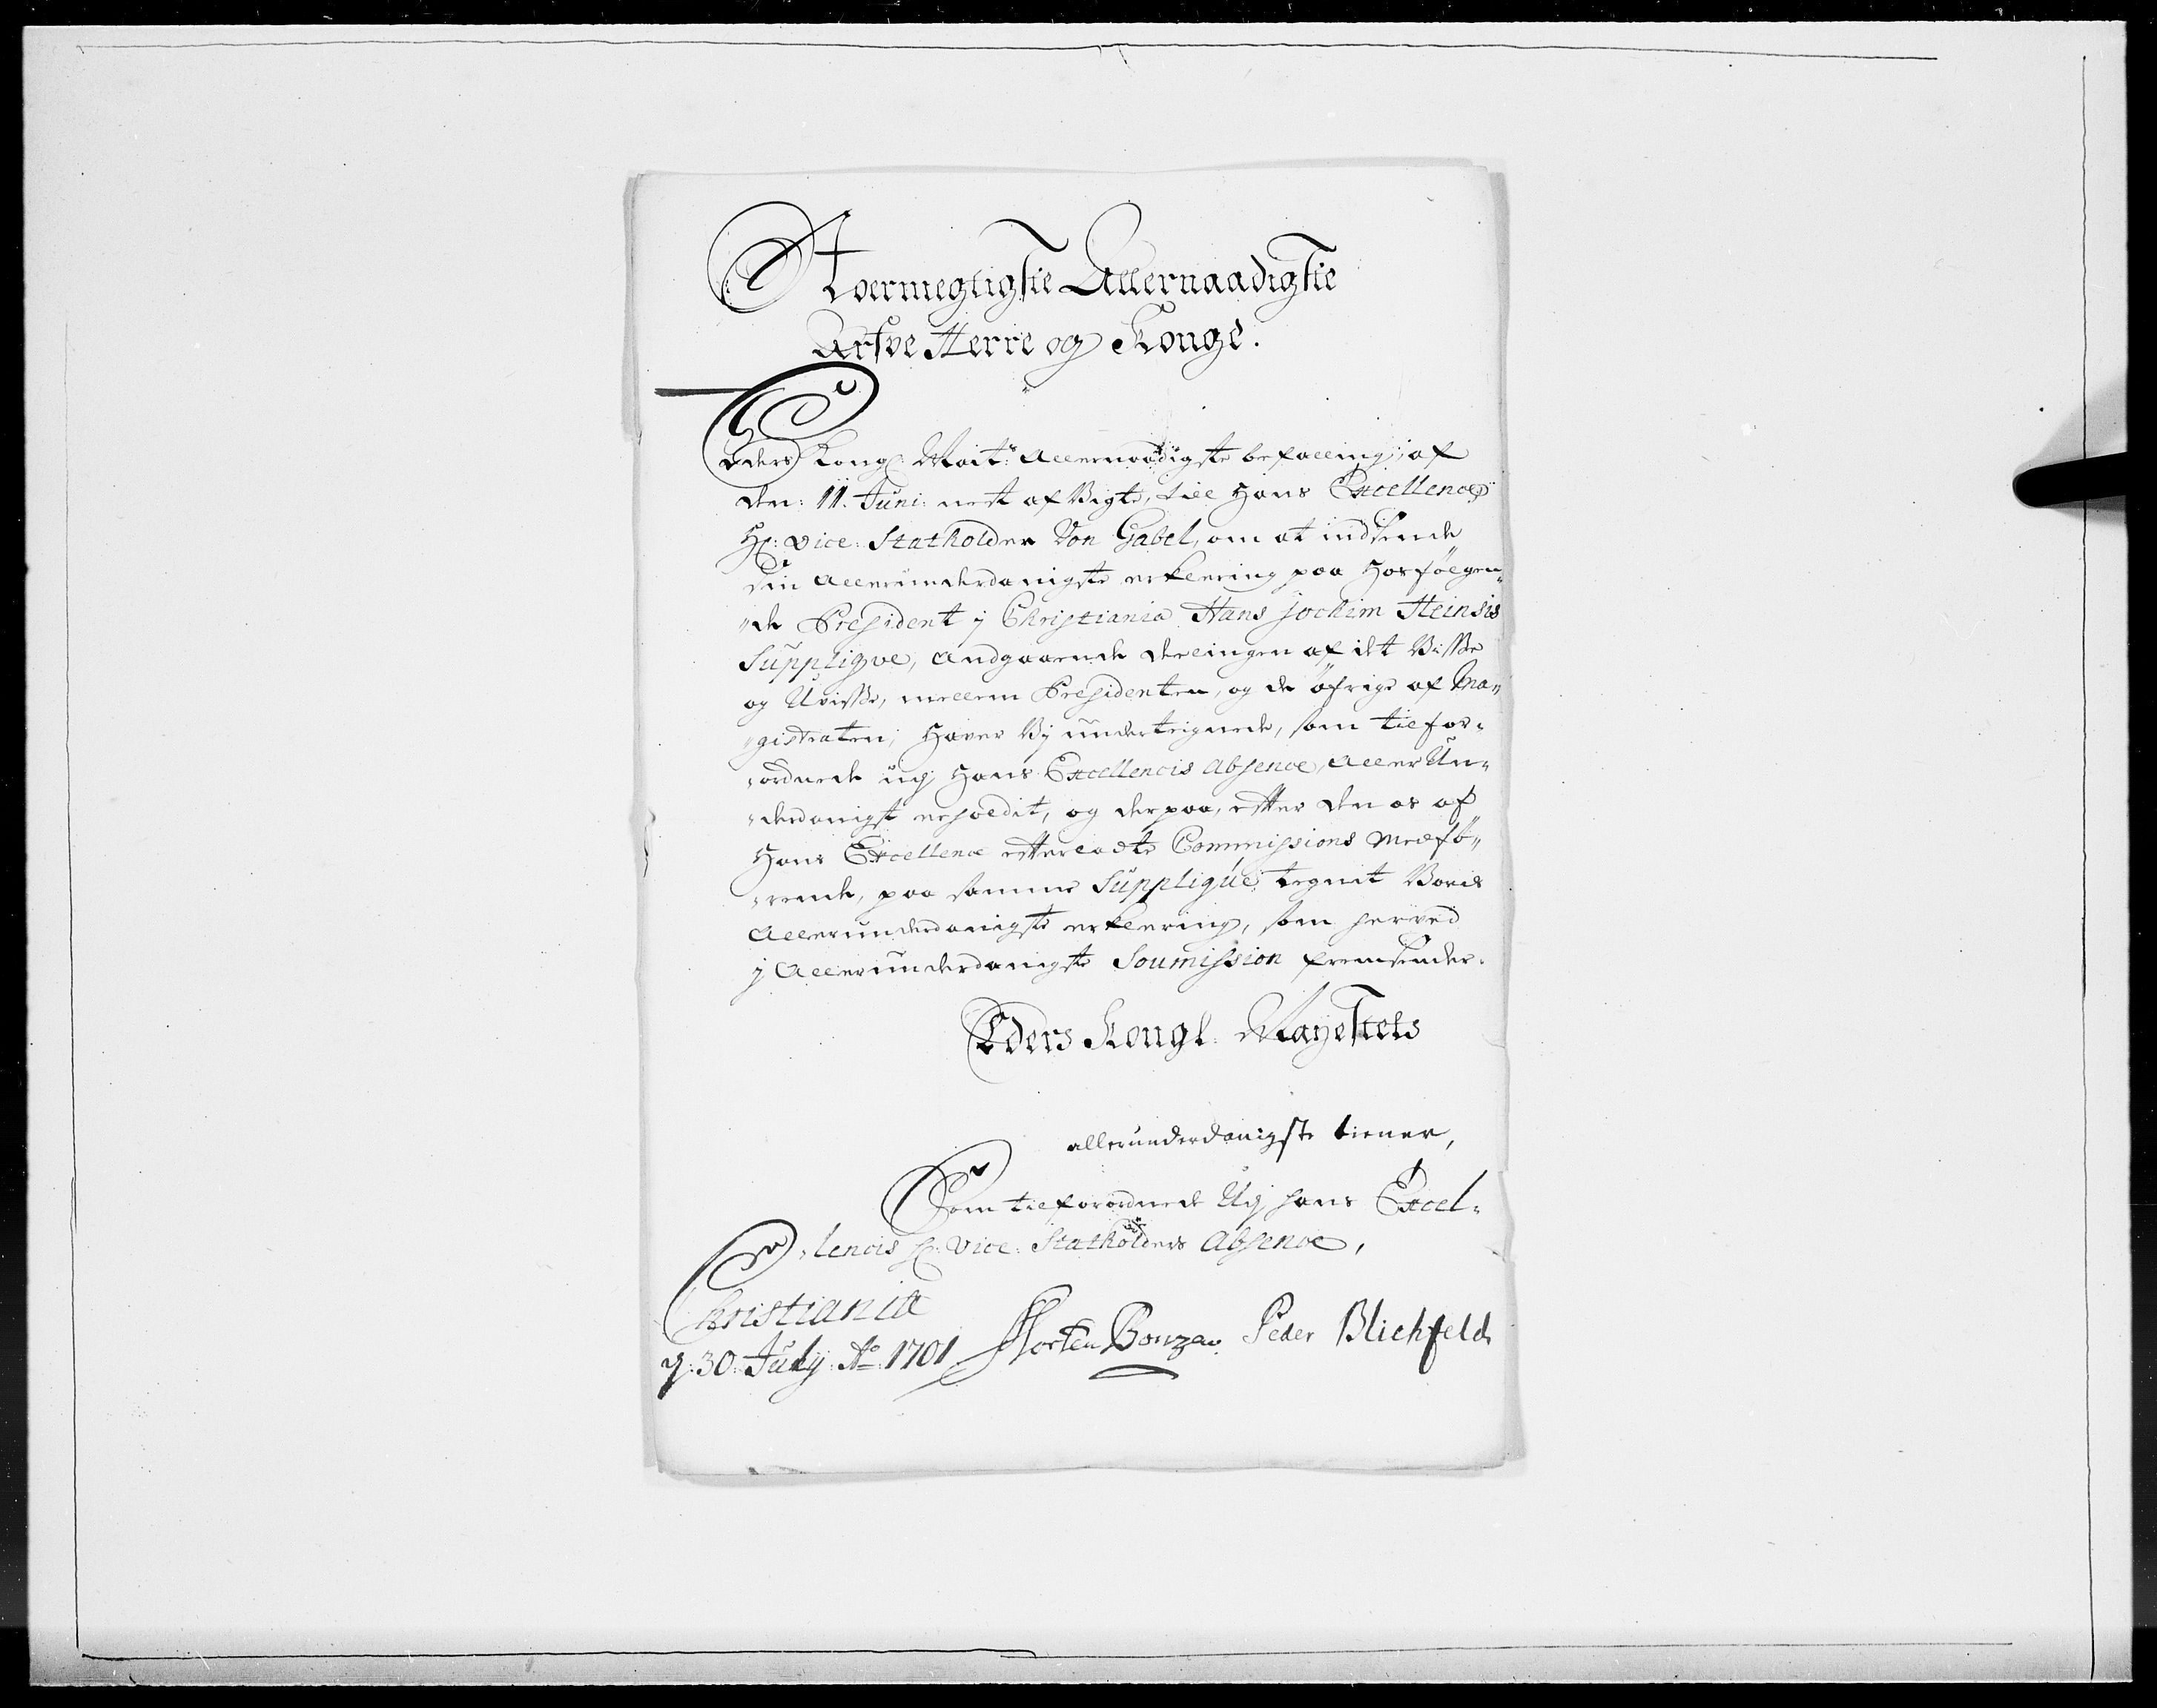 Stoermegtigste Allernaadigste
Arfve Herre og Konge.
Eders Kongl: Mait:s allernaadigste befalling, af
den: 11. Juni: nest afvigte, till Hans Excellence
Hr: Vice: Statholder Von Gabel, om at indsende
sin allerunderdanigste erklering paa hosfölgen„
„de President j Christiania Hans Jochim Heinsis
Suppliqve, andgaaende deelingen af det Visse
og Uvisse, mellem Presidenten, og de öfrige af Ma„
„gistraten; Haver Vj underteignede, som tilfor-
„ordnede udj Hans Excellencis Absence, aller Un-
„derdanigst erholdit, og derpaa, efter den os af
Hans Excellence efterladte Commissions medfö„
„rende, paa samme Supplique, tegnet Voris
allerunderdanigste erklering, som herved
j allerunderdanigste Soumission fremsendes.
Eders Kongl. Mayestets
allerunderdanigste tiener,
Som tilforordnede Udj hans Excel-
„lencis hr: Vice: Statholders Absence,
Christiania
d: 30: July: Ao: 1701 Morten Bonzau Peder Blichfeld